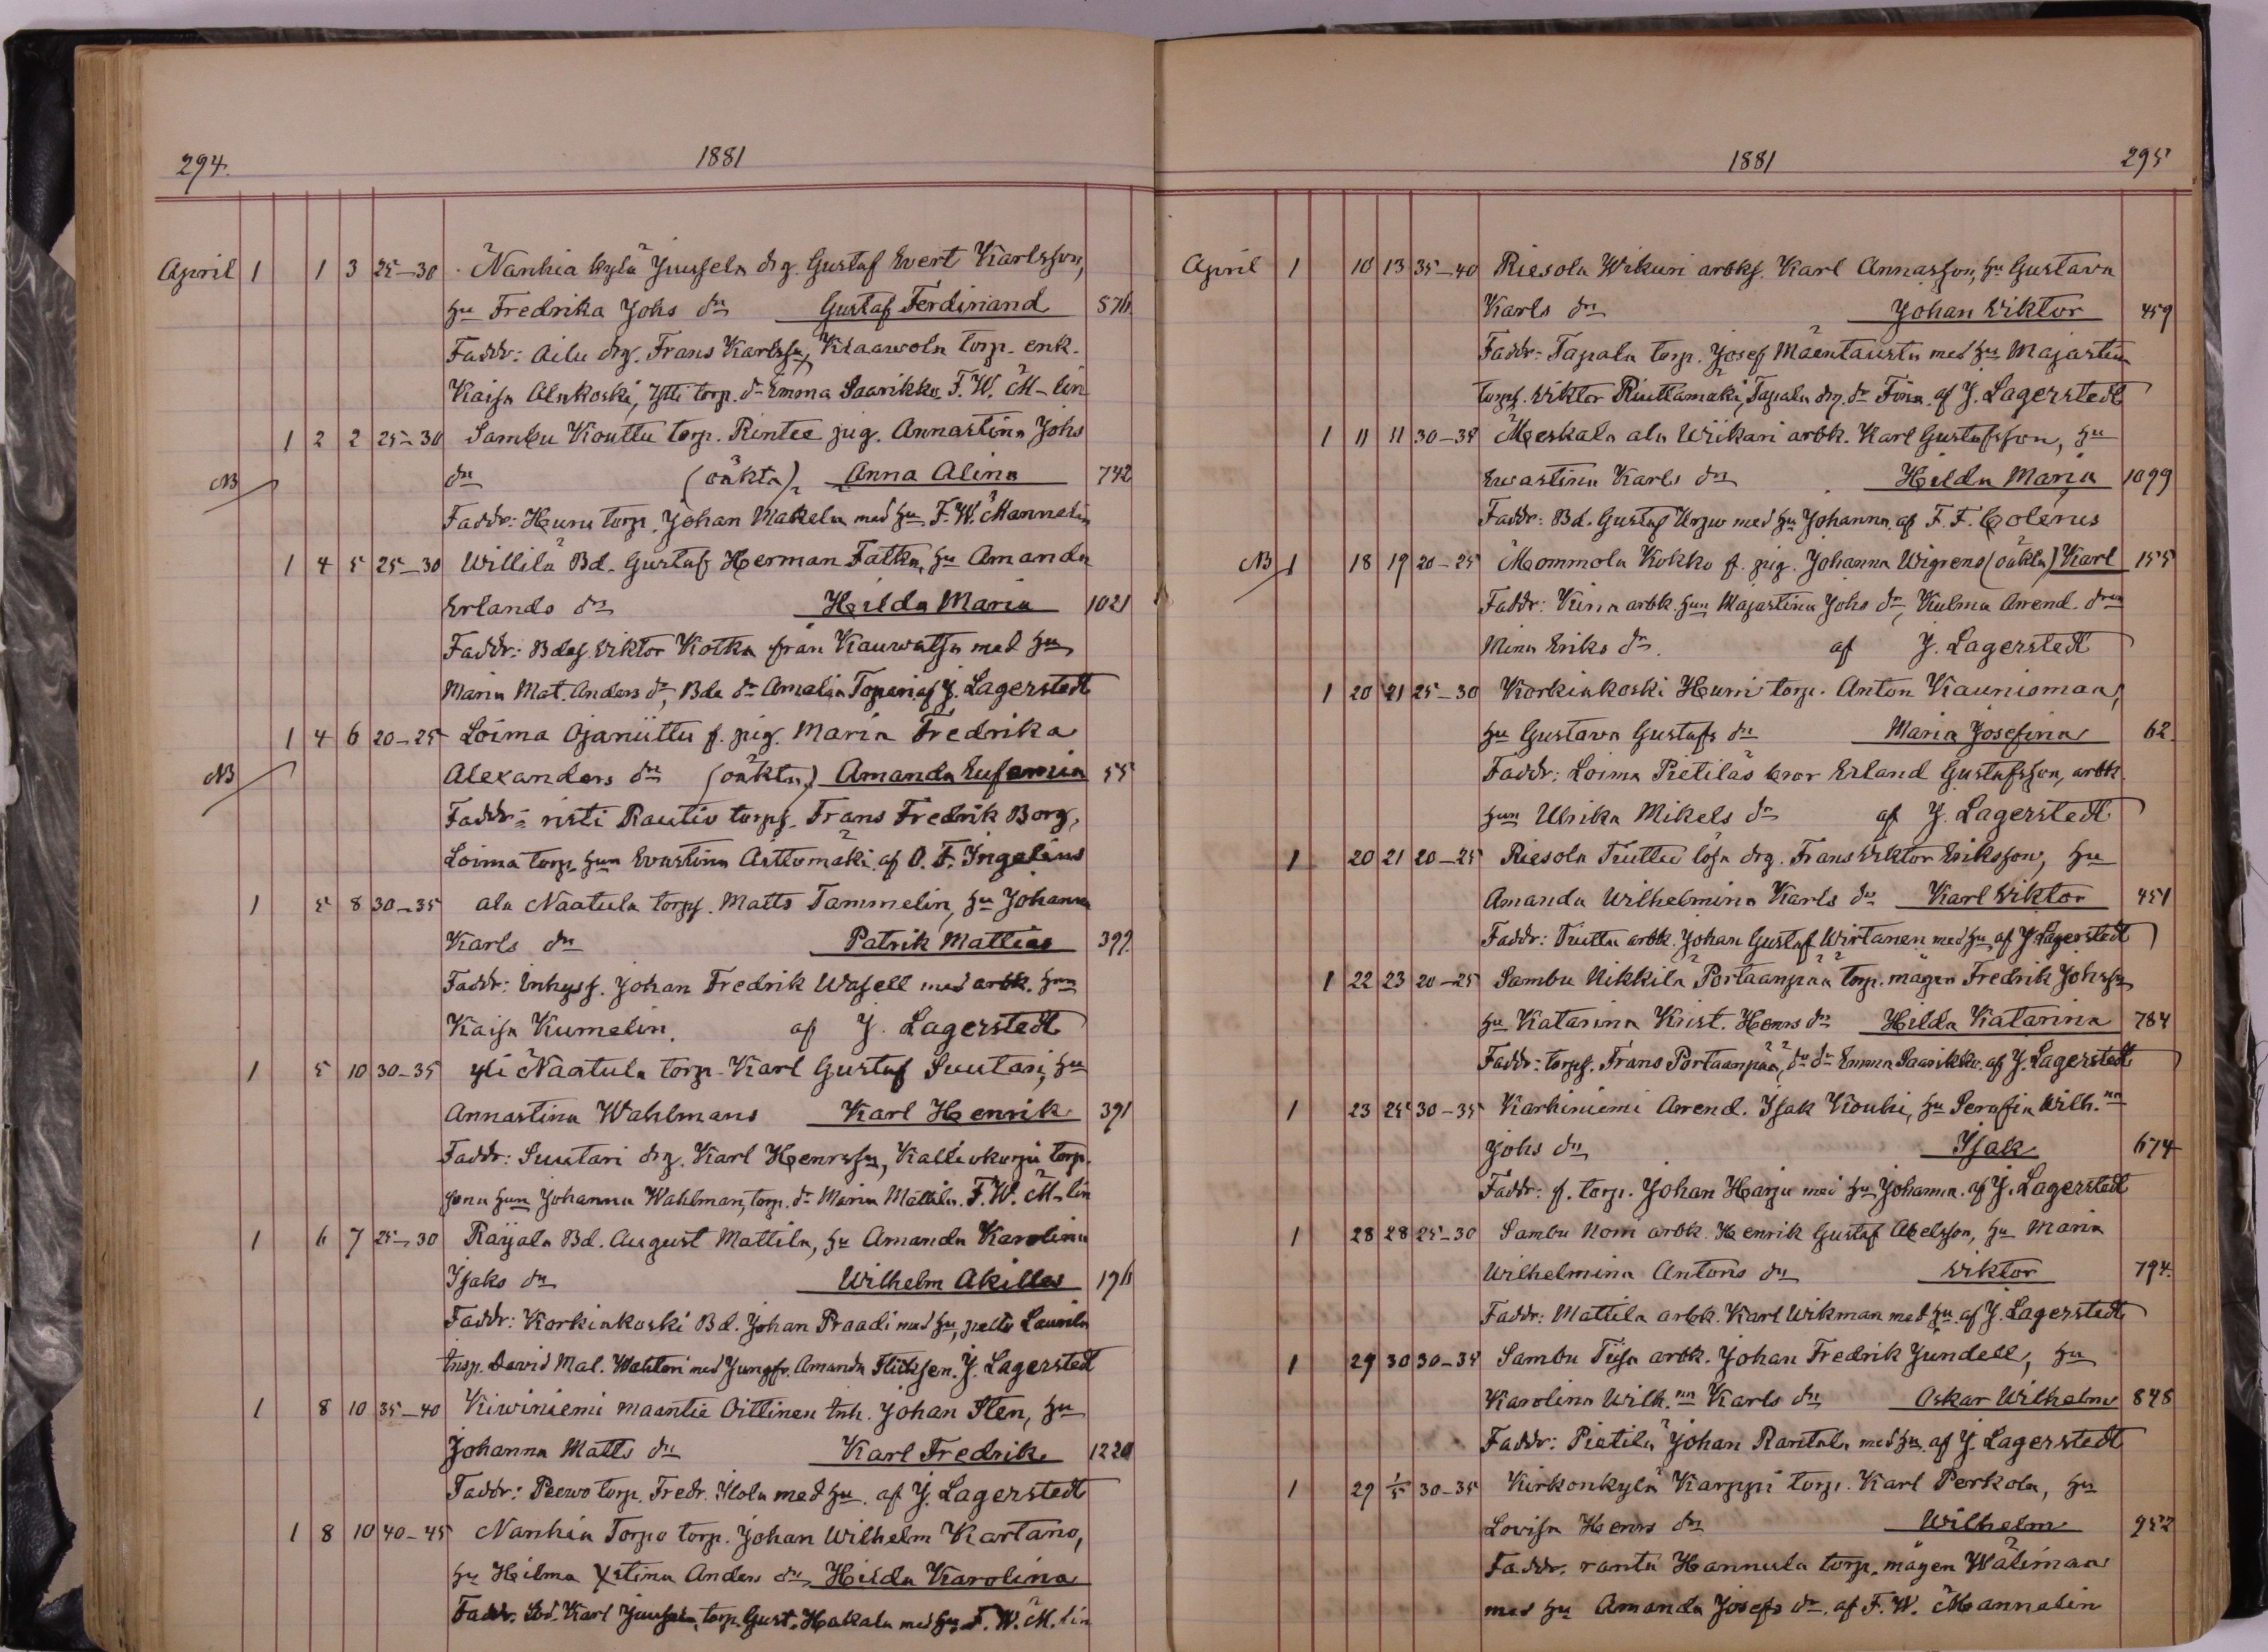 294.
1881
April 1 1 3 25-30 Nanhia kylä Jussela drg. Gustaf Evert Karlsson,
hu Fredrika Johs dr Gustaf Ferdinand 576
Faddr: Ailu drg. Frans Karlssn, Klaawola torp. enk.
Kaisa Alakoski, Ylli torp. dr Emma Saarikko. F. W. M-lin
1 2 2 25-30 Sambu Kouttu torp. Rintee pig. Annastina Johs
NB dr (oäkta) Anna Alina 742
Faddr: Huru torp. Johan Mäkelä med hu F. W. Mannelin
1 4 5 25-30 Willilä Bd. Gustaf Herman Fatka, hu Amanda
Erlands dr Hilda Maria 1021
Faddr: Bdes. Wiktor Kotka från Kauwatsa med hu
Maria Mat. Anders dr, Bda dr Amalia Topari af J. Lagerstedt
1 4 6 20-25 Loima Ojaniittu f. pig. Maria Fredrika
NB Alexanders dr (oäkta) Amanda Eufemia 55
Faddr: risti Rautio torps. Frans Fredrik Borg,
Loima torp. hun Evastina Aittomäki af O. F. Ingelius
1 5 8 30-35 ala Naatula torps. Matts Tammelin, hu Johanna
Karls dr Patrik Mattias 399
Faddr: Inhyss. Johan Fredrik Wasell med arbk. hun
Kaisa Kumelin. af J. Lagerstedt
1 5 10 30-35 yli Naatula torp. Karl Gustaf Suutari, hu
Annastina Wahlmans Karl Henrik 391
Faddr: Suutari drg. Karl Henrssn, Kalliokorju torp.
sona hun Johanna Wahlman, torp. dr Maria Mattila. F. W. M-lin
1 6 7 25-30 Raijala Bd. August Mattila, hu Amanda Karolina
Isaks dr Wilhelm Akilles 196
Faddr: Korkiakoski Bd. Johan Praadi med hu, pelto Laurila
Insp. David Mal. Wahlten med Jungfr. Amanda J. Lagerstedt
1 8 10 35-40 Kiwiniemi maantie Oittinen Inh. Johan Sten, hu
Johanna Matts dr Karl Fredrik 1220
Faddr: Peewo torp. Fredr. Ilola med hu. af J. Lagerstedt
1 8 10 40-45 Nanhia Torpo torp. Johan Wilhelm Kartano,
hu Hilma Xstina Anders dr Hilda Karolina
Faddr. Karl Jussela, torp. Gust. Hakala med hu F. W. M. lin
1881
295
April 1 10 13 35-40 Riesola Wikuri arbks. Karl Annasson, hu Gustava
Karls dr Johan Wiktor 459
Faddr: Tapala torp. Josef Mäentausta med hu Majastina
torps. Wiktor Riuttamäki, Tapala drg. dr Fina af J. Lagerstedt
1 11 11 30-35 Meskala ala Wiikari arbk. Karl Gustafsson, hu
Ewastina Karls dr Hilda Maria 1099
Faddr: Bd. Gustaf Urzu med hu Johanna af F. F. Colerus
NB 1 18 19 20-25 Mommola Kokko f. pig. Johanna Wigrens (oäkta) Karl 155
Faddr: Kuna arbk. hun Majastina Johs dr, Kulma Arrend. drn
Mina Eriks dr. af J. Lagerstedt
1 20 21 25-30 Korkiakoski Hurri torp. Anton Kaunismaa,
hu Gustava Gustafs dr Maria Josefina 62.
Faddr: Loima Pietilas bror Erland Gustafsson, arbk
hun Ulrika Mikels dr af J. Lagerstedt
1 20 21 20-25 Riesola Tuittu lösa drg. Frans Wiktor Eriksson, hu
Amanda Wilhelmina Karls dr Karl Wiktor 451
Faddr: Tuittu arbk. Johan Gustaf Wirtanen med hu af J. Lagerstedt
1 22 23 20-25 Sambu Nikkilä Portaanpää torp. mågen Fredrik Johssn
hu Katarina Krist. Henrs dr Hilda Katarina 784
Faddr: torps. Frans Portaanpää, dr dr Emma Saarikko. af J. Lagerstedt
1 23 25 30-35 Karhiniemi Arrend. Isak Kouhi, hu Serafia Wilh.nn
Johs dr Isak 674
Faddr: f. torp. Johan Harju med hu Johanna. af J. Lagerstedt
1 28 28 25-30 Sambu Nomi arbk. Henrik Gustaf Abelsson, hu Maria
Wilhelmina Antons dr Wiktor 794.
Faddr: Mattila arbk. Karl Wikman med hu. af J. Lagerstedt
1 29 30 30-35 Sambu Tiisa arbk. Johan Fredrik Jundell, hu
Karolina Wilh.nn Karls dr Oskar Wilhelm 848
Faddr: Pietilä Johan Rantala med hu. af J. Lagerstedt
1 29 1/5 30-35 Kirkonkylä Karppi torp. Karl Perkola, hu
Lovisa Henrs dr Wilhelm 952
Faddr. ranta Hannula torp. mågen Wälimaa
med hu Amanda Josefs dr. af F. W. Mannelin